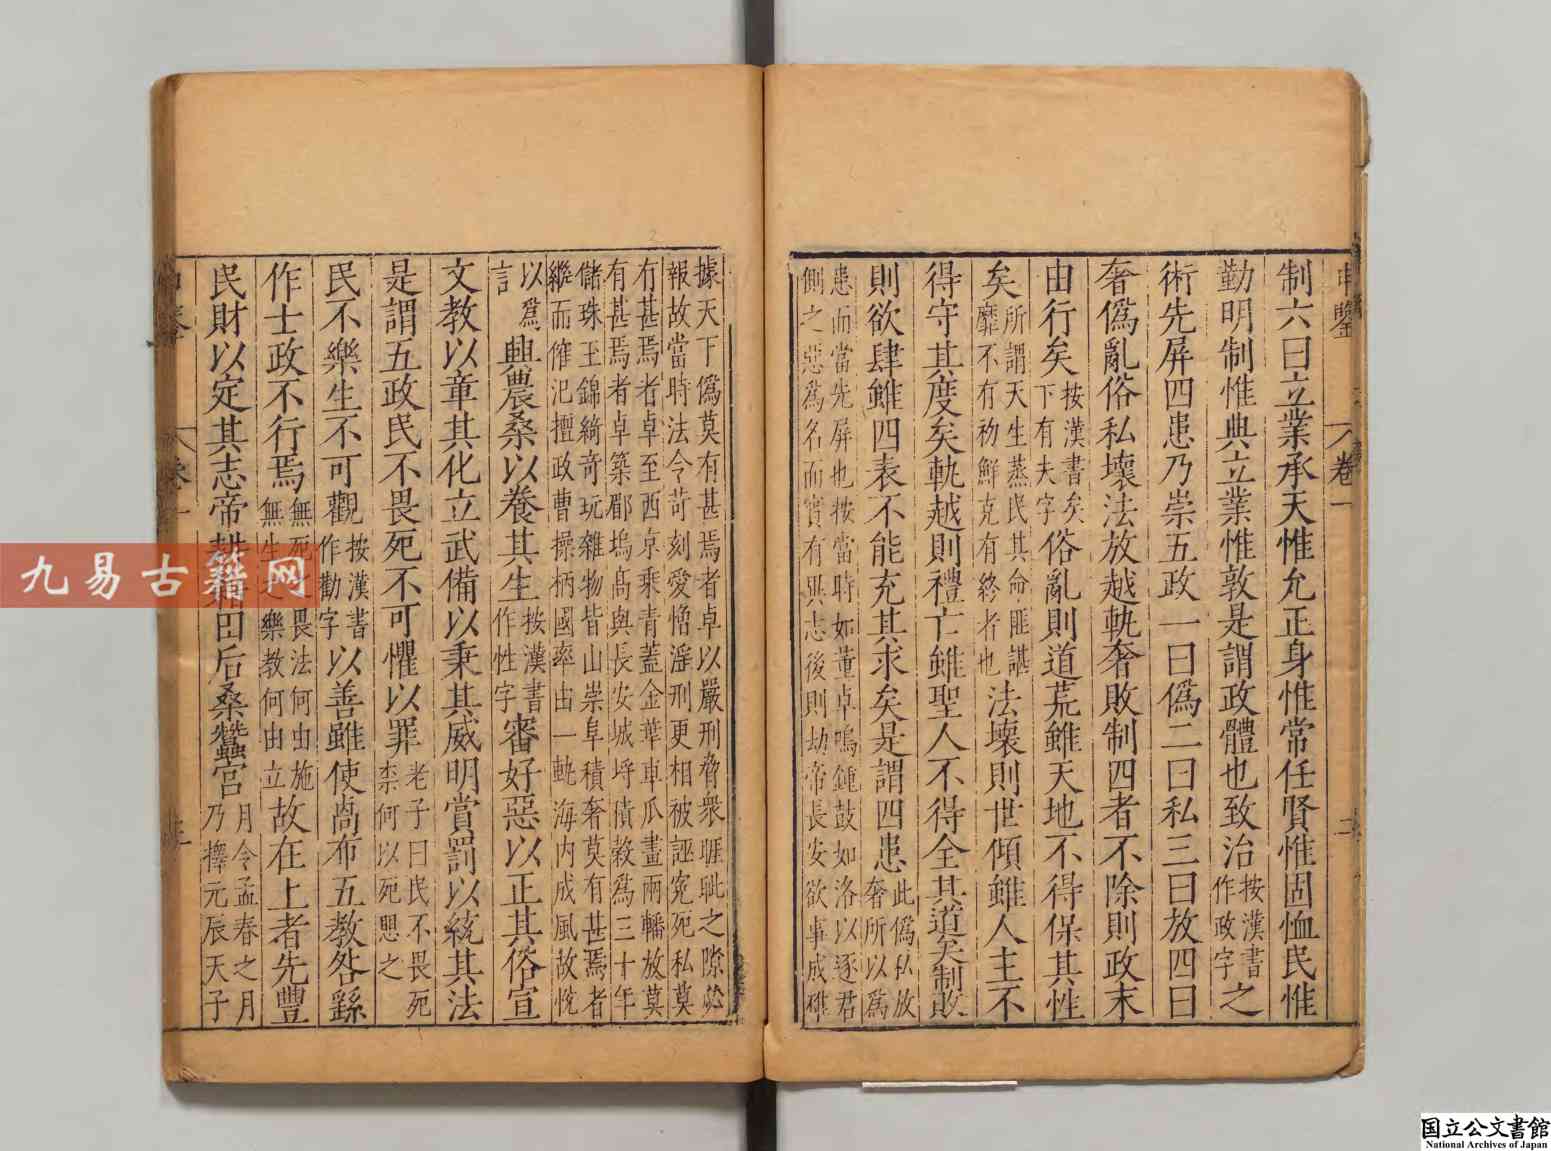 申鑒 卷一 二
制六曰立業承天惟允正身惟常任賢惟固恤民惟
勤明制惟典立業惟敦是謂政體也致治按漢書作政字之
術先屏四患乃崇五政一曰僞二曰私三曰放四曰
奢僞亂俗私壞法放越軌奢敗制四者不除則政末
由行矣按漢書矣下有夫字俗亂則道荒雖天地不得保其性
矣所謂天生蒸民其命匪諶靡不有初鮮克有終者也法壞則世傾雖人主不
得守其度矣軌越則禮亡雖聖人不得全其道矣制敗
則欲肆雖四表不能充其求矣是謂四患此僞私放奢所以爲
患而當先屏也按當時如董卓鳴鍾鼓如洛以逐君
側之惡爲名而實有異志後則劫帝長安欲事成雄
據天下僞莫有甚焉者卓以嚴刑脅衆睚眦之隙必
報故當時法令苛刻愛憎淫刑更相被誣寃死私莫
有甚焉者卓至西京乘青蓋金華車瓜畫兩轓放莫
有甚焉者卓築郿塢高與長安城埒積穀爲三十年
儲珠玉錦綺奇玩雜物皆山崇阜積奢莫有甚焉者
繼而傕汜擅政曹操柄國率由一軌海内成風故悅
以爲言興農桑以養其生按漢書作性字審好惡以正其俗宣
文教以章其化立武備以秉其威明賞罰以統其法
是謂五政民不畏死不可懼以罪老子曰民不畏死柰何以死思之
民不樂生不可觀按漢書作勸字以善雖使卨布五教咎繇
作士政不行焉無死畏法何由施無生樂教何由立故在上者先豐
民財以定其志帝耕籍田后桑蠶宮月令孟春之月乃擇元辰天子